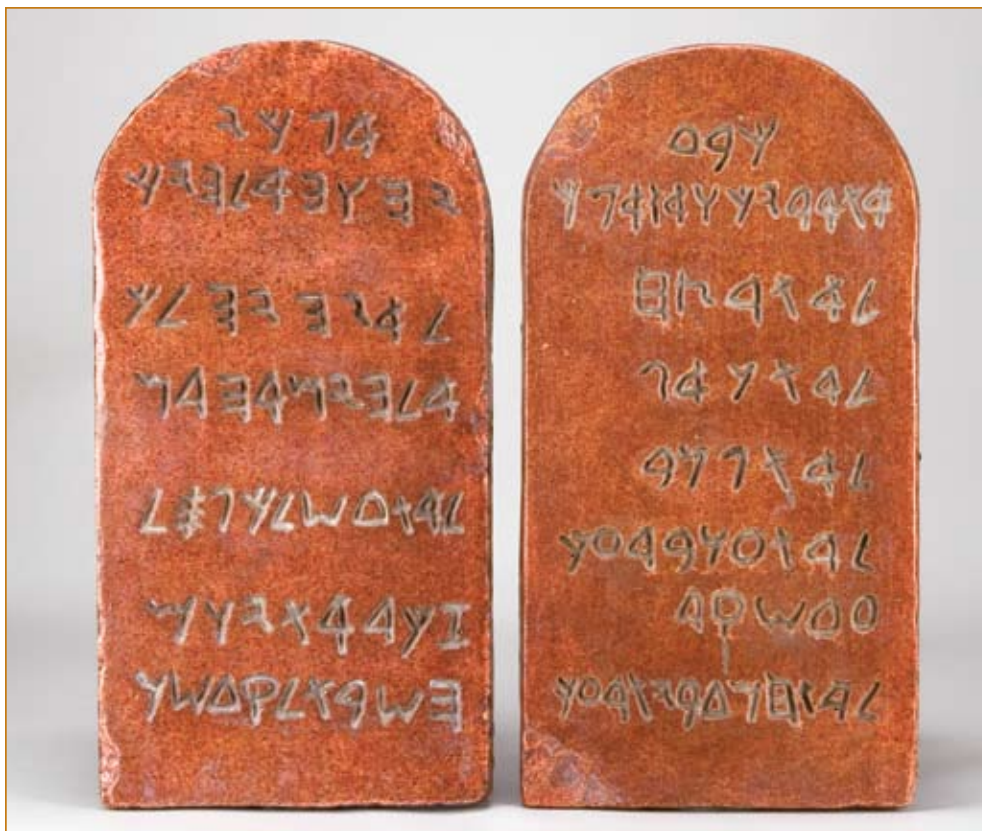 𐤀𐤍𐤊𐤉
𐤉𐤄𐤅𐤄𐤀𐤋𐤄𐤉𐤊
𐤋𐤀𐤉𐤄𐤉𐤄𐤋𐤊
𐤀𐤋𐤄𐤉𐤌𐤀𐤇𐤓𐤌
𐤋𐤀𐤕𐤏𐤔𐤋𐤊𐤐𐤎𐤋
𐤆𐤊𐤓𐤀𐤕𐤉𐤅𐤌
𐤄𐤔𐤁𐤕𐤋𐤒𐤃𐤔𐤅
𐤊𐤁𐤃
𐤀𐤕𐤀𐤁𐤉𐤊𐤅𐤀𐤕𐤀𐤌𐤊
𐤋𐤀𐤕𐤓𐤑𐤇
𐤋𐤀𐤕𐤍𐤀𐤐
𐤋𐤀𐤕𐤂𐤍𐤁
𐤋𐤀𐤕𐤏𐤍𐤁𐤓𐤏𐤊
𐤏𐤃𐤔𐤒𐤓
𐤋𐤀𐤕𐤇𐤌𐤃𐤁𐤉𐤕𐤓𐤏𐤊